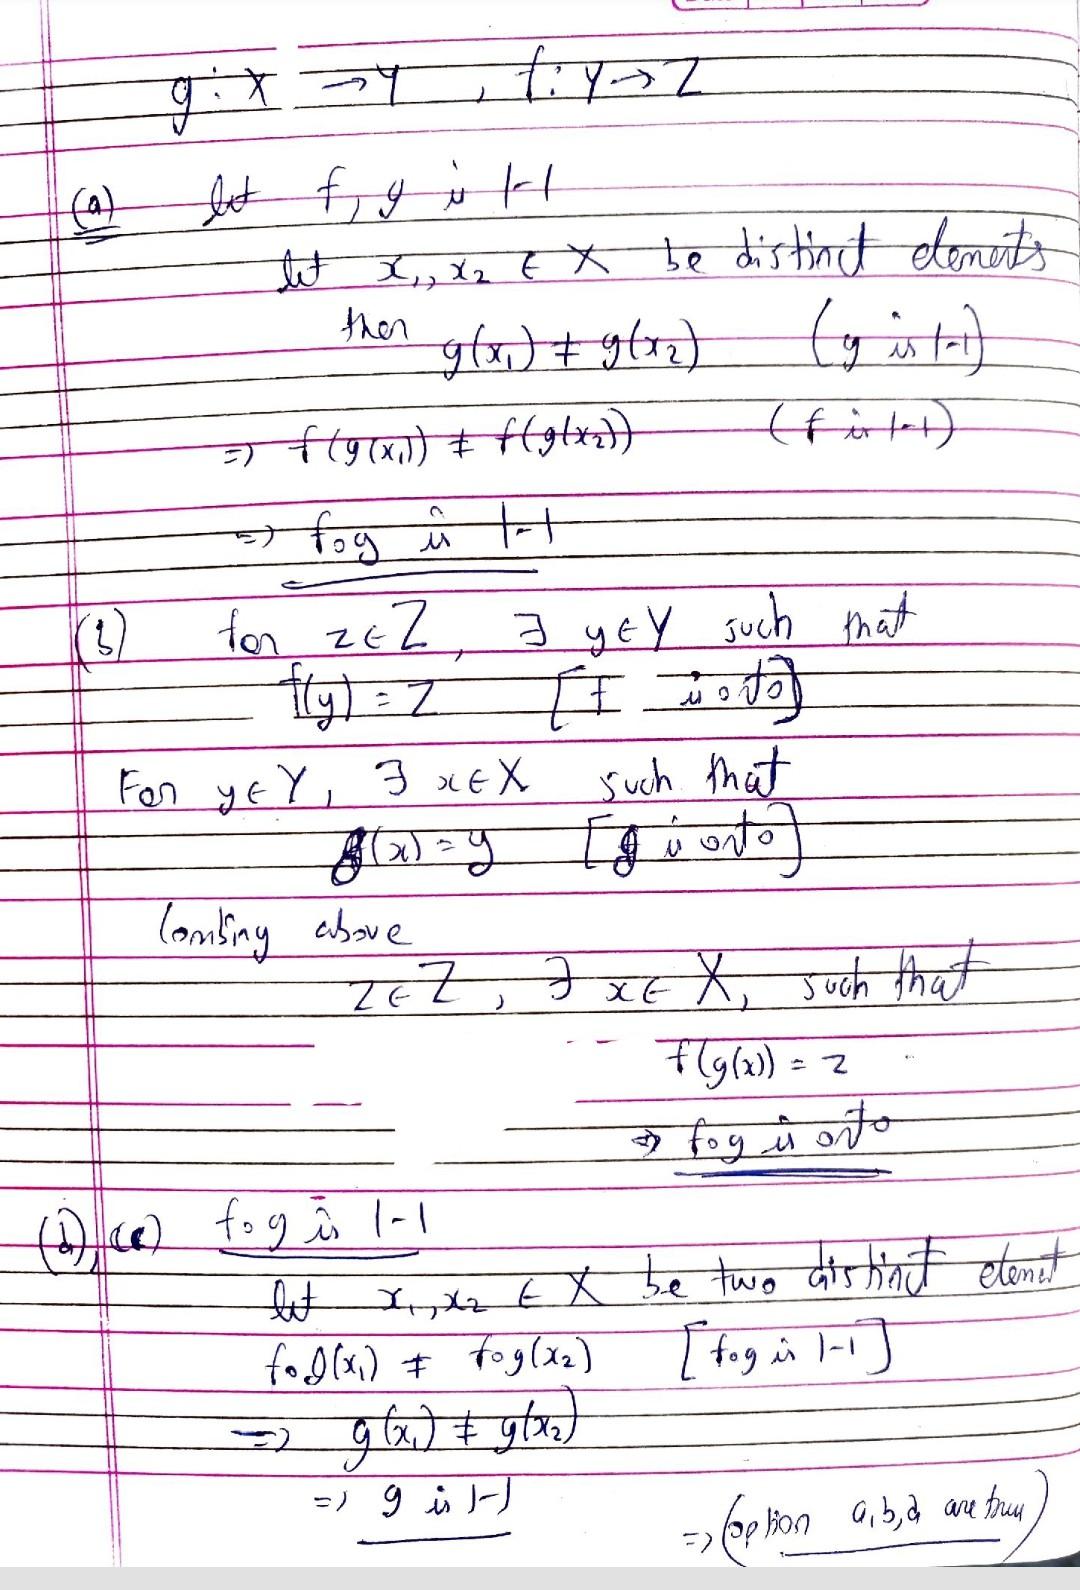 g : X → Y , f : Y → Z
(a) let f, g is 1-1
let x₁, x₂ ∈ X be distinct elements
then g(x₁) ≠ g(x₂) (g is 1-1)
=> f(g(x₁)) ≠ f(g(x₂)) (f is 1-1)
=> fog is 1-1
(b) for z ∈ Z, ∃ y ∈ Y such that
f(y) = z [f is onto]
For y ∈ Y, ∃ x ∈ X such that
g(x) = y [g is onto]
Combing above
z ∈ Z, ∃ x ∈ X, such that
f(g(x)) = z
=> fog is onto
(d), (c) fog is 1-1
let x₁, x₂ ∈ X be two distinct elemet
fog(x₁) ≠ fog(x₂) [fog is 1-1]
=> g(x₁) ≠ g(x₂)
=> g is 1-1
=> (option a, b, d are true)